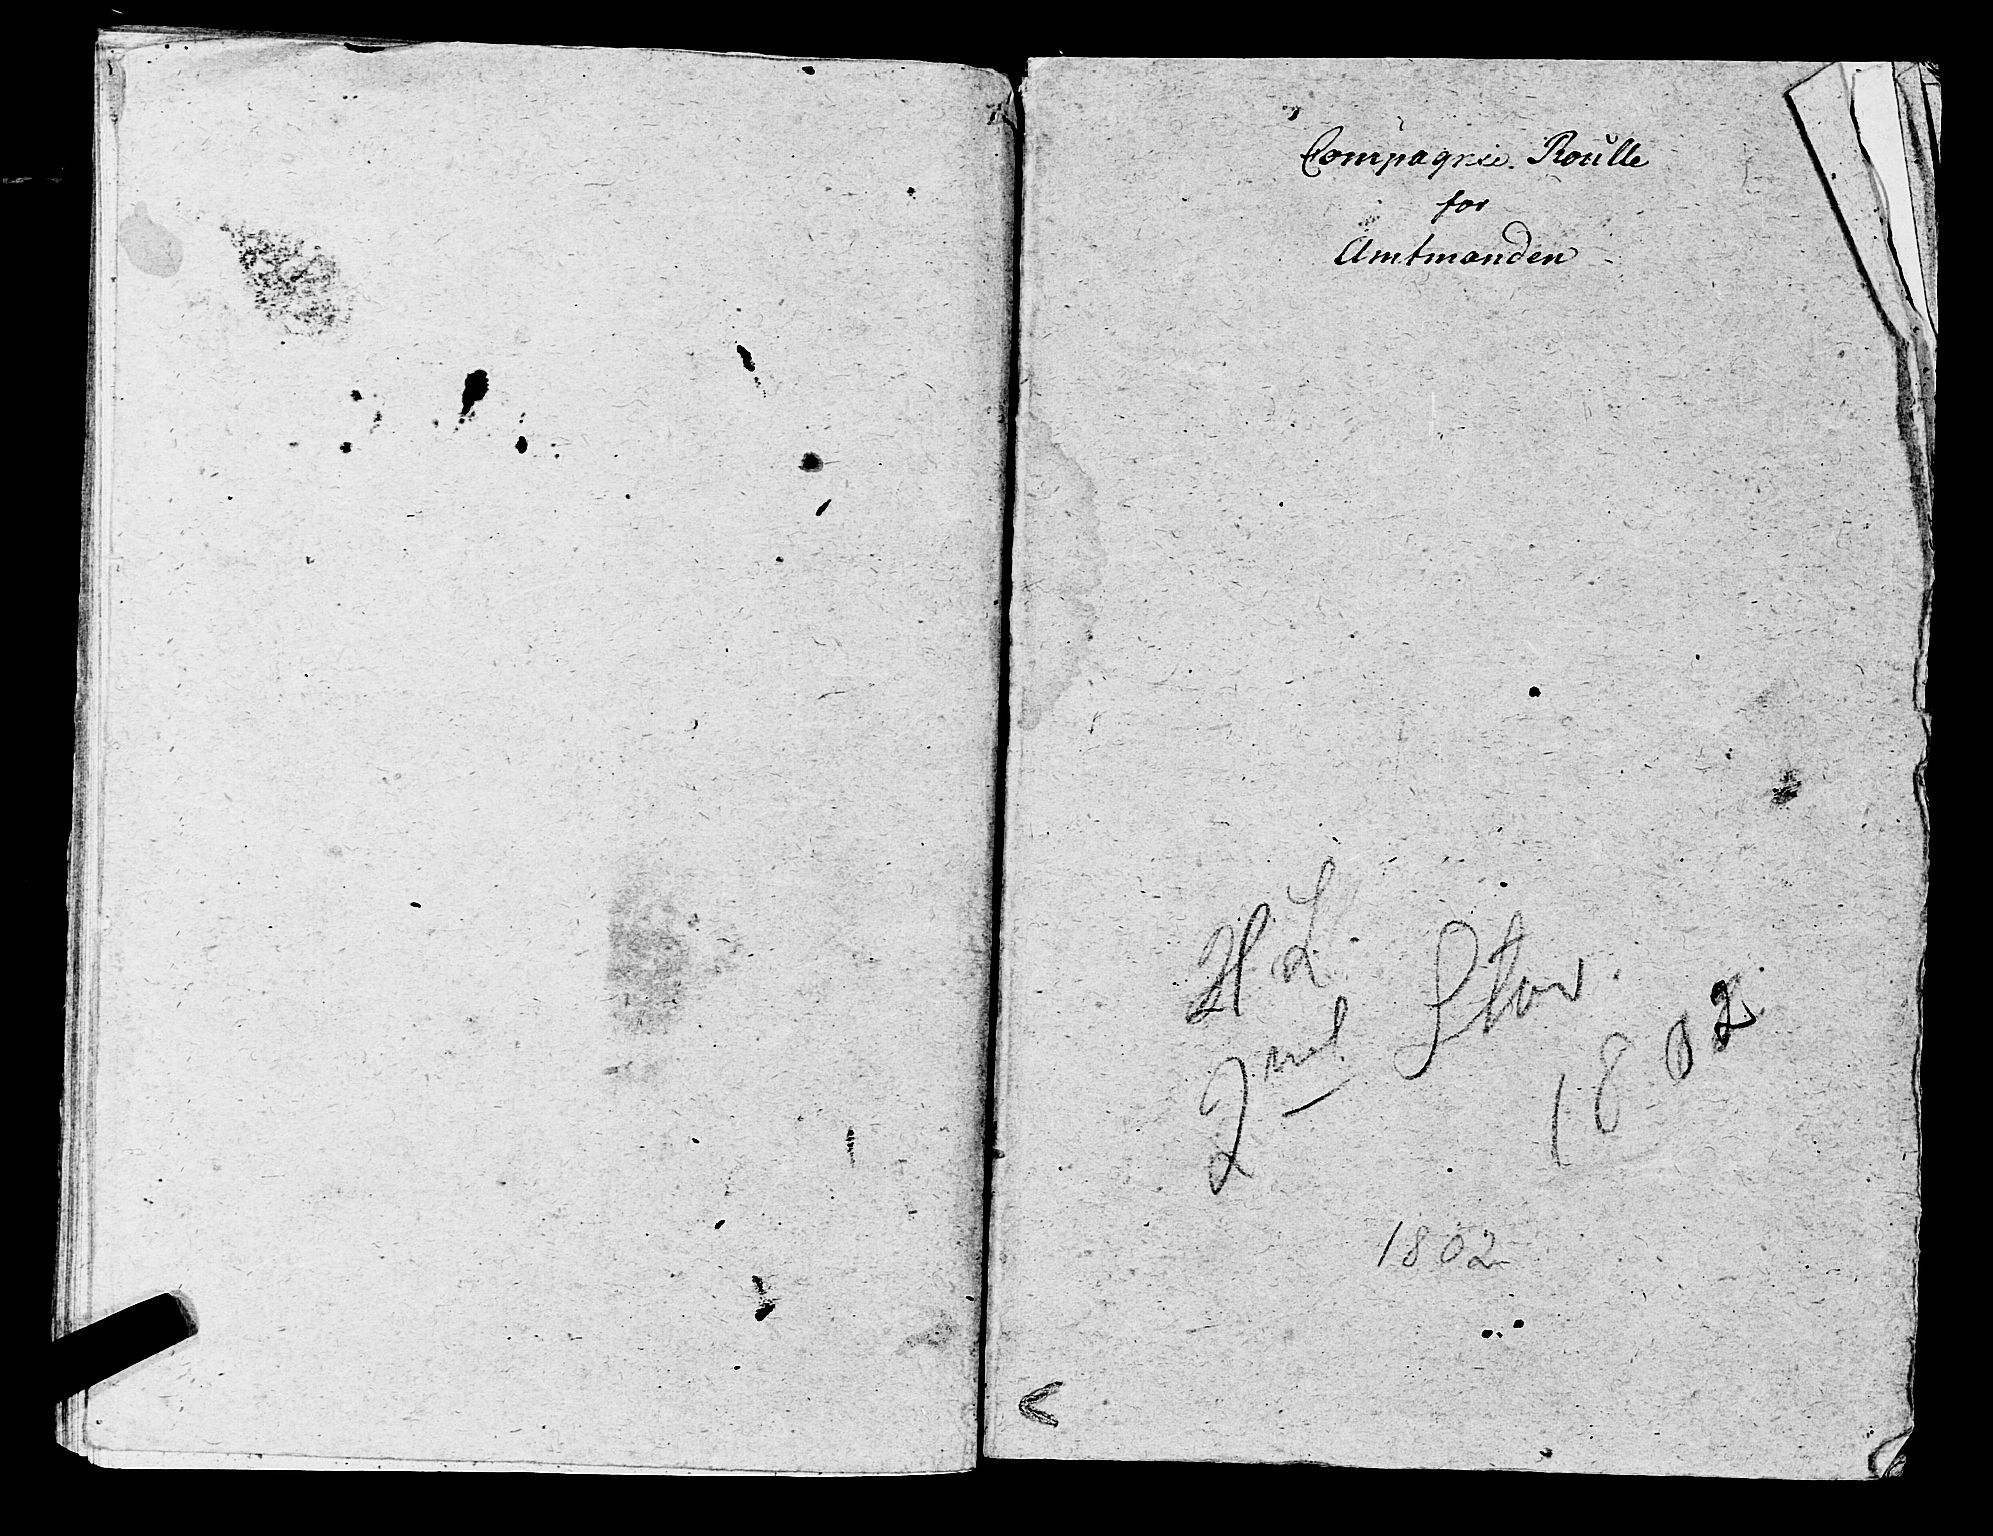 Compagnie Roulle
for
Amtmanden
H L.
Stov.
1802.
1802